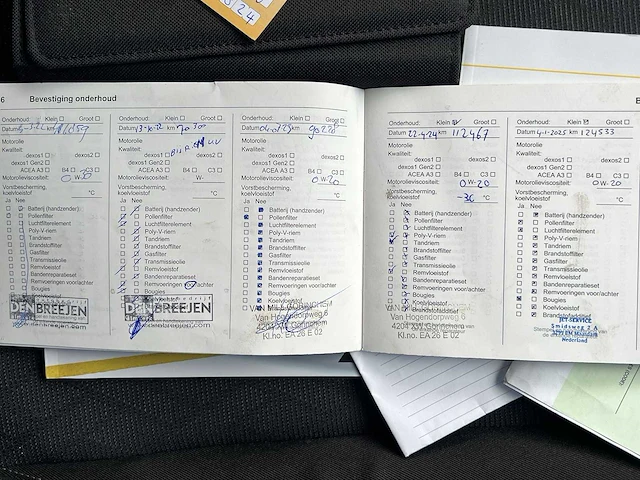 8/24
6 Bevestiging onderhoud
Onderhoud: Klein Groot
Datum km
Motorolie
Kwaliteit:
dexos1 dexos2
dexos1 Gen2
ACEA A3 B4 C3
Motorolieviscositeit: 0 W-20
Vorstbescherming,
koelvloeistof °C
Ja Nee
Batterij (handzender)
Pollenfilter
Luchtfilterelement
Poly-V-riem
Tandriem
Brandstoffilter
Gasfilter
Transmissieolie
Remvloeistof
Bandenreparatieset
Remvoeringen voor/achter
Bougies
DEN BREEJEN
Onderhoud: Klein Groot
Datum km
Motorolie
Kwaliteit:
dexos1 dexos2
dexos1 Gen2
ACEA A3 B4 C3
Motorolieviscositeit: W-
Vorstbescherming,
koelvloeistof °C
Ja Nee
Batterij (handzender)
Pollenfilter
Luchtfilterelement
Poly-V-riem
Tandriem
Brandstoffilter
Gasfilter
Transmissieolie
Remvloeistof
Bandenreparatieset
Remvoeringen voor/achter
Bougies
DEN BREEJEN
Onderhoud: Klein Groot
Datum km
Motorolie
Kwaliteit:
dexos1 dexos2
dexos1 Gen2
ACEA A3 B4 C3
Motorolieviscositeit: 0 W-20
Vorstbescherming,
koelvloeistof °C
Ja Nee
Batterij (handzender)
Pollenfilter
Luchtfilterelement
Poly-V-riem
Tandriem
Brandstoffilter
Gasfilter
Transmissieolie
Remvloeistof
Bandenreparatieset
Remvoeringen voor/achter
Bougies
Koelvloeistof
Van Hogendorpweg 6
Kl.no. EA 26 E 02
Onderhoud: Klein Groot
Datum 22-4-24 km 112467
Motorolie
Kwaliteit:
dexos1 dexos2
dexos1 Gen2
ACEA A3 B4 C3
Motorolieviscositeit: 0 W-20
Vorstbescherming,
koelvloeistof -36 °C
Ja Nee
Batterij (handzender)
Pollenfilter
Luchtfilterelement
Poly-V-riem
Tandriem
Brandstoffilter
Gasfilter
Transmissieolie
Remvloeistof
Bandenreparatieset
Remvoeringen voor/achter
Bougies
Koelvloeistof
Van Hogendorpweg 6
Kl.no. EA 26 E 02
Onderhoud: Klein Groot
Datum 4-1-2025 km 124533
Motorolie
Kwaliteit:
dexos1 dexos2
dexos1 Gen2
ACEA A3 B4 C3
Motorolieviscositeit: 0 W-20
Vorstbescherming,
koelvloeistof °C
Ja Nee
Batterij (handzender)
Pollenfilter
Luchtfilterelement
Poly-V-riem
Tandriem
Brandstoffilter
Gasfilter
Transmissieolie
Remvloeistof
Bandenreparatieset
Remvoeringen voor/achter
Bougies
Koelvloeistof
Brandstofadditief
JET-SERVICE
Smidsweg 2 A
Nederland